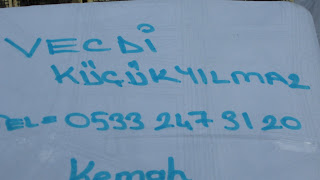 VECDİ
KÜÇÜKYILMAZ
TEL= 0533 247 31 20
Kemah